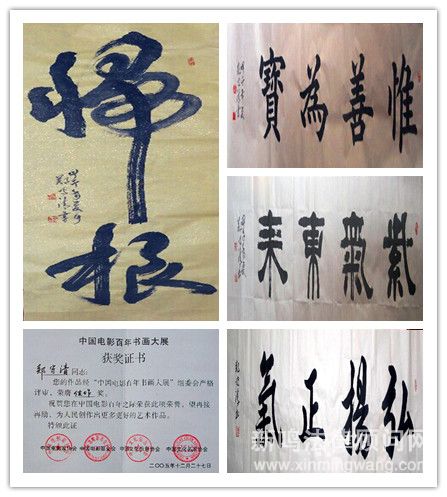 歸根
惟善為寶
紫氣東来
弘揚正氣
中国电影百年书画大展
获奖证书
同志：
您的作品经“中国电影百年书画大展”组委会严格
评审，荣膺佳作奖。
祝贺您在中国电影百年之际荣获此项荣誉，望再接
再励，为人民创作出更多更好的艺术作品。
特颁此证
二〇〇五年十二月二十七日
www.xinmingwang.com